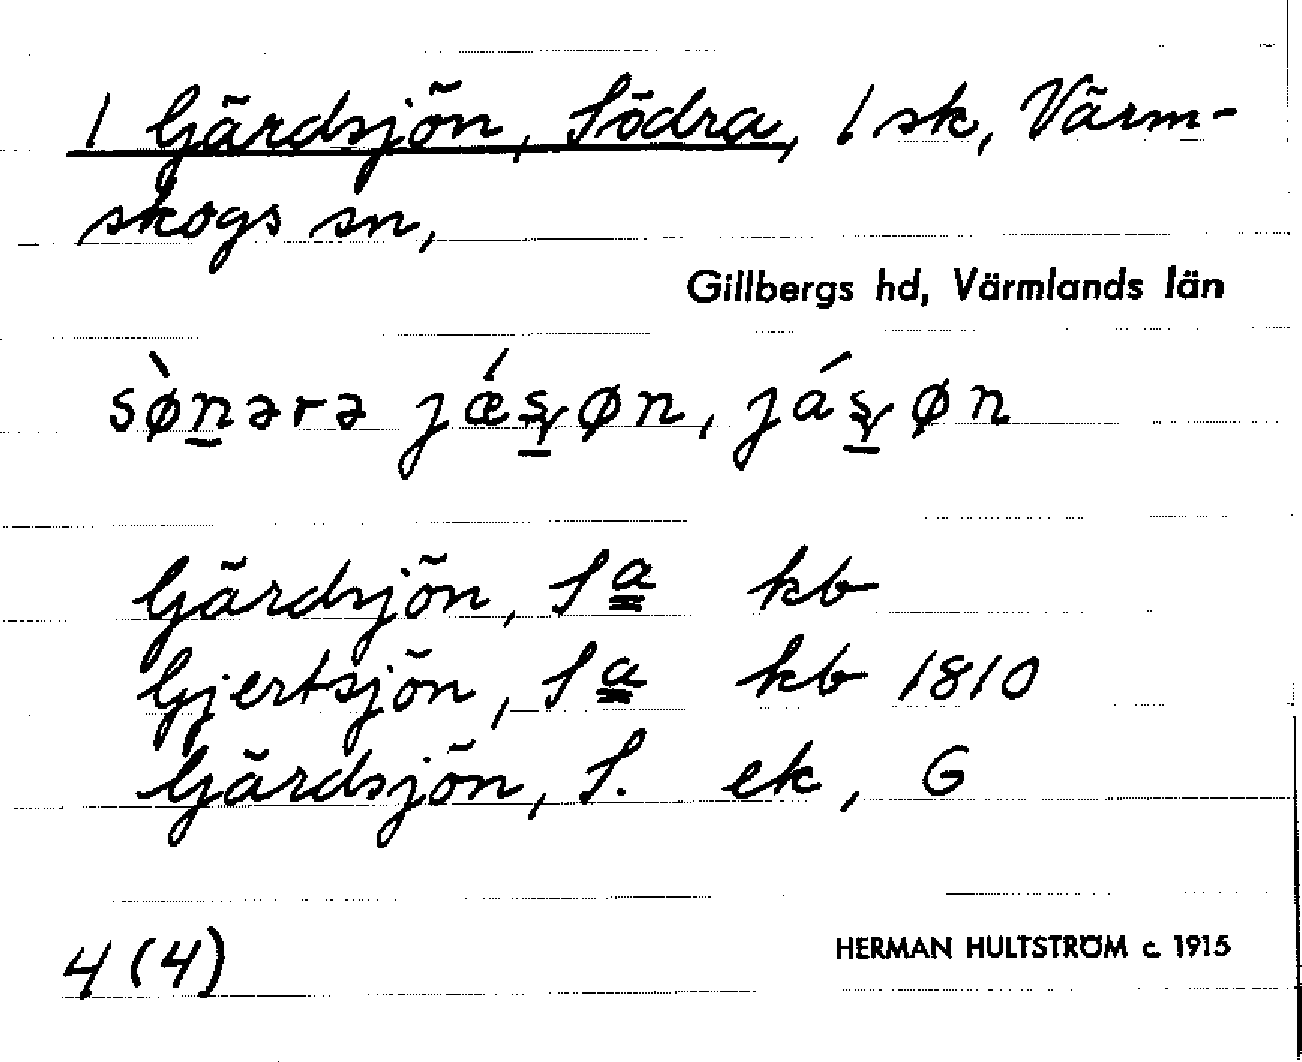 1 Gärdsjön, Södra, 1 sk, Värm-
skogs sn,
Gillbergs hd, Värmlands län
sø̀n̲ərə jǽʂ̲øn, jáʂ̲øn
Gärdsjön, Sa kb
Gjertsjön, Sa kb 1810
Gärdsjön, S. ek, G
4 (4)
HERMAN HULTSTRÖM c. 1915